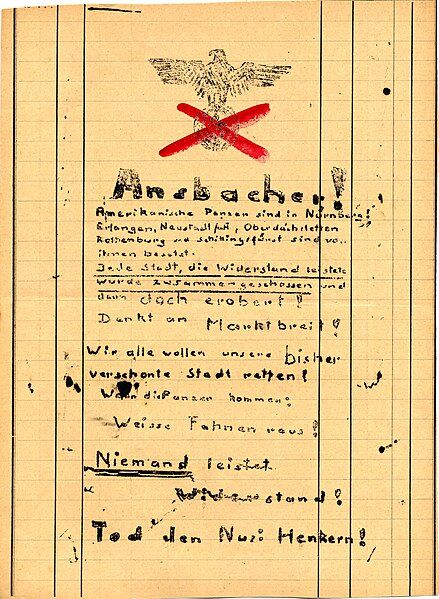 Ansbacher!
Amerikanische Panzen sind in Nürnberg!
Erlangen, Neustadt, Oberdachstetten
Rothenburg und Schillingsfürst sind von
ihnen besetzt.
Jede Stadt, die Widerstand leistete
wurde zusammengeschossen und
dann doch erobert!
Denkt an Marktbreit!
Wir alle wollen unsere bisher
verschonte Stadt retten!
Wenn die Panzen kommen:
Weisse Fahnen raus!
Niemand leistet
Widerstand!
Tod den Nazi Henkern!